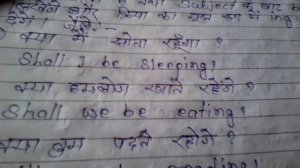 Subject के बाद
क्रिया का मूल रूप में ing
क्या मैं सोता रहूँगा ?
Shall I be sleeping?
क्या हमलोग खाते रहेंगे ?
Shall we be eating?
क्या तुम पढ़ते रहोगे ?